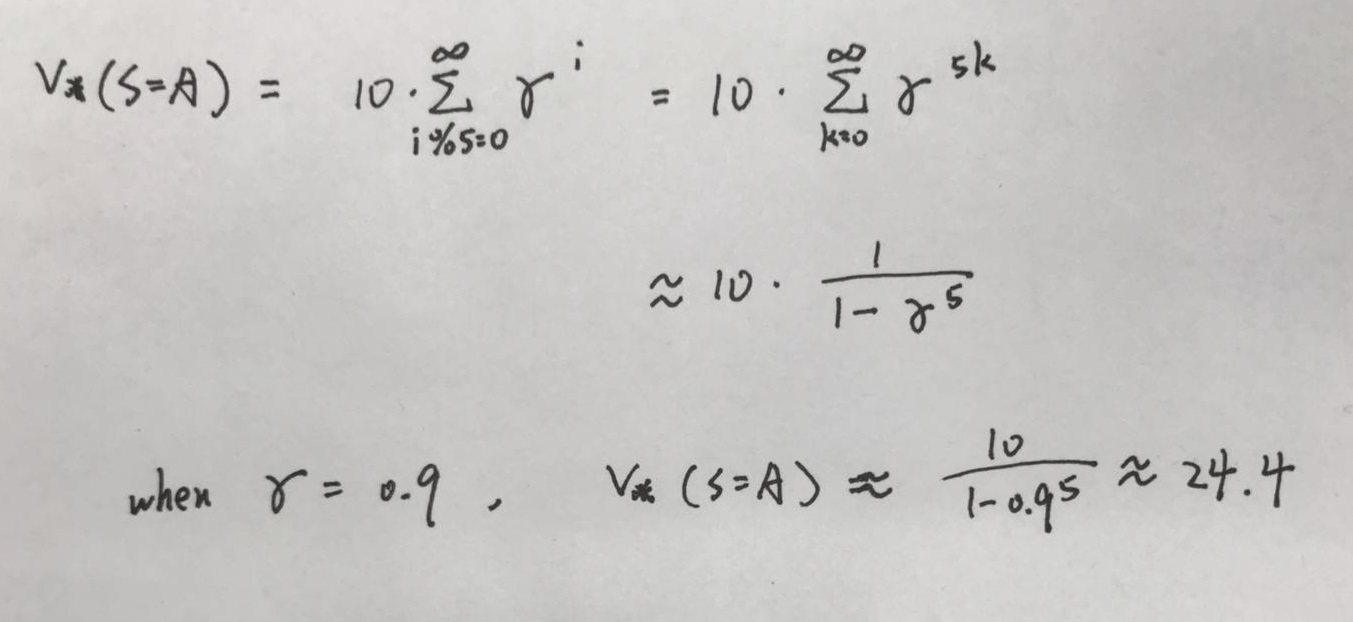 V*(S=A) = 10 · ∑_{i%5=0}^{∞} γ^i = 10 · ∑_{k=0}^{∞} γ^{5k}
≈ 10 · \frac{1}{1-γ^5}
when γ = 0.9 , V*(S=A) ≈ \frac{10}{1-0.9^5} ≈ 24.4